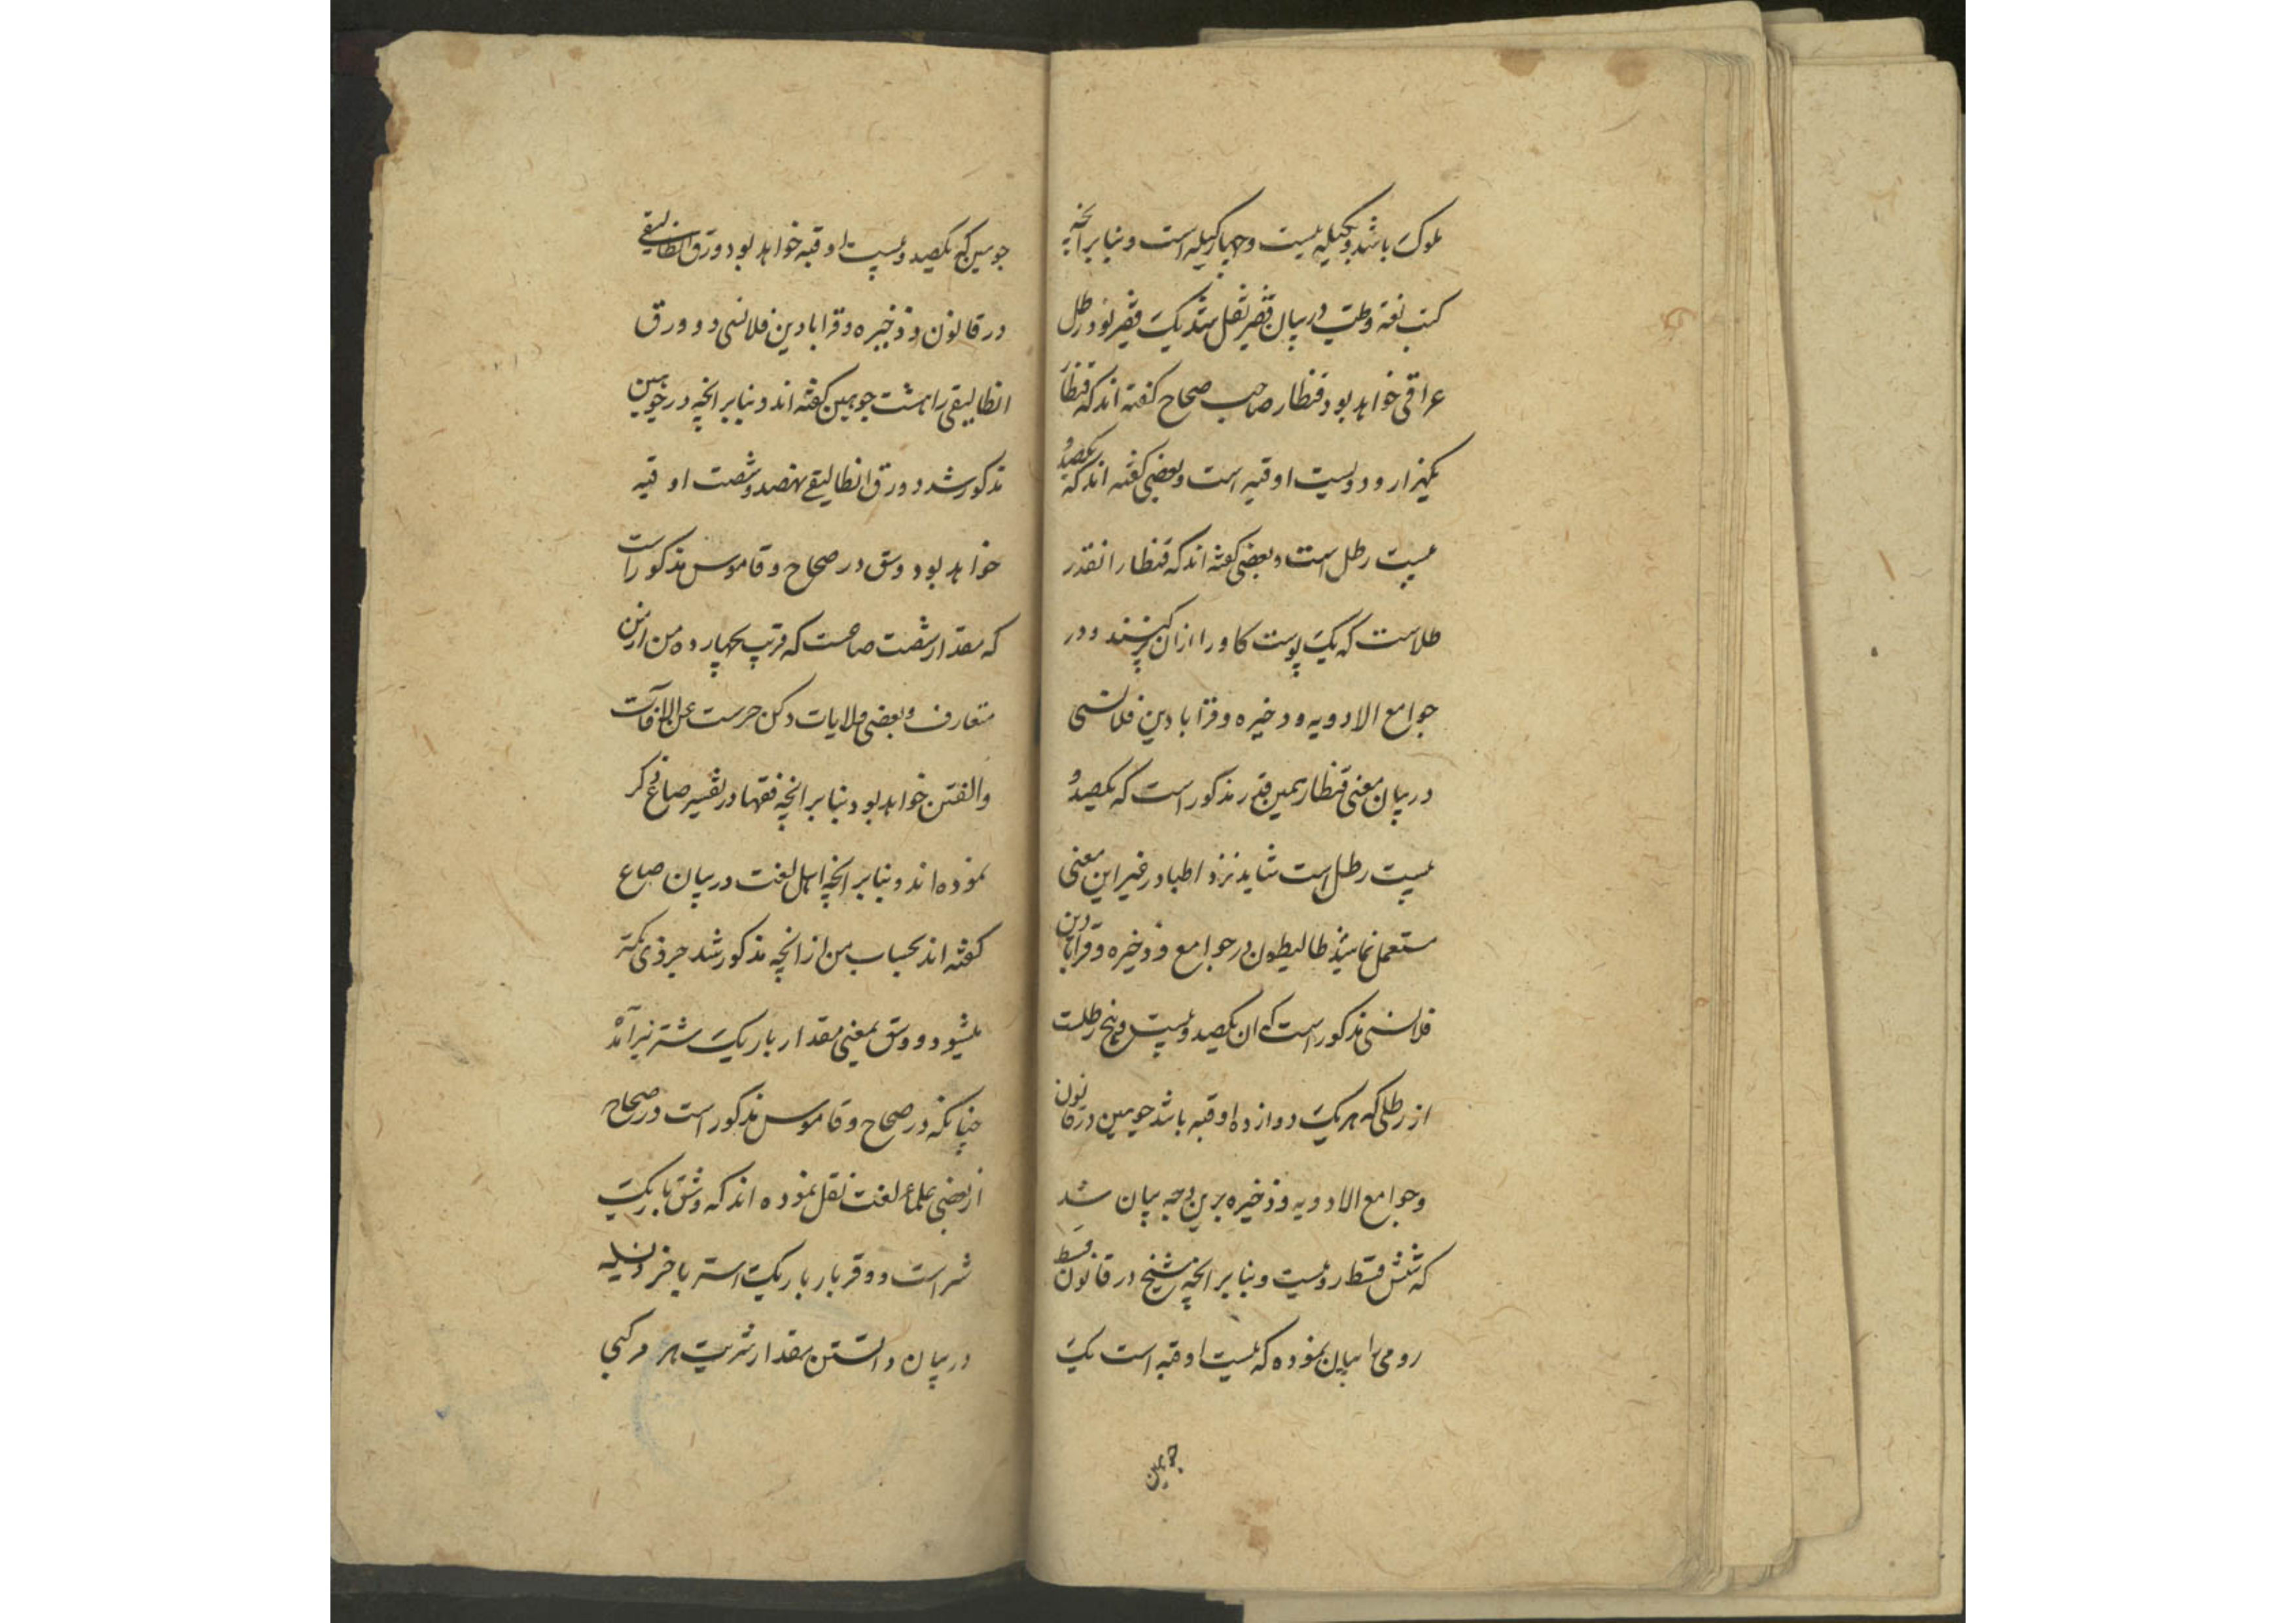 ملوک باشد و بکیله بیست و چهار کیله است و بنا بر انچه
کتب لغة و طب در بیان قفیز نقل شد یک قفیز نود رطل
عراقی خواهد بود قنطار صاحب صحاح کفته اند که قنطار
یکهزار و دویست اوقیه است و بعضی کفته اند که یکصد و
بیست رطل است و بعضی کفته اند که قنطار انقدر
طلاست که یک پوست کاو را ازان پر کنند و در
جوامع الادویه و ذخیره و قرابادین قلانسی
در بیان معنی قنطار همین قدر مذکور است که یکصد و
بیست رطل است شاید نزد اطبا در غیر این معنی
مستعمل نماشد طالیطون در جوامع و ذخیره و قرابادین
قلانسی مذکور است که ان یکصد و بیست و پنج رطلست
از رطلی که هر یک دوازده اوقیه باشد جومین در قانون
و جوامع الادویه و ذخیره برین وجه بیان شد
که شش قسط رومیست و بنا بر انچه شیخ در قانون قسط
رومی را بیان نموده که بیست اوقیه است یک
جومین
جومین که یکصد و بیست اوقیه خواهد بود دورق انطالیقی
در قانون و ذخیره و قرابادین قلانسی دورق
انطالیقی را هشت جومین کفته اند و بنا بر انچه در جومین
مذکور شد دورق انطالیقی نهصد و شصت اوقیه
خواهد بود وسق در صحاح و قاموس مذکور است
که مقدار شصت صاعست که قریب بچهارده من از من
متعارف بعضی ولایات دکن حرست عن الآفات
والفتن خواهد بود بنا بر انچه فقها در تفسیر صاع ذکر
نموده اند و بنا بر انچه اهل لغت در بیان صاع
کفته اند بحساب من از انچه مذکور شد جزوی کمتر
میشود و وسق بمعنی مقدار بار یک شتر نیز آمده
چنانکه در صحاح و قاموس مذکور است در صحاح
از بعضی علماء لغت نقل نموده اند که وسق بار یک
شتر است و وقر بار یک استر یا خر
در بیان دانستن مقدار شربت هر مرکبی